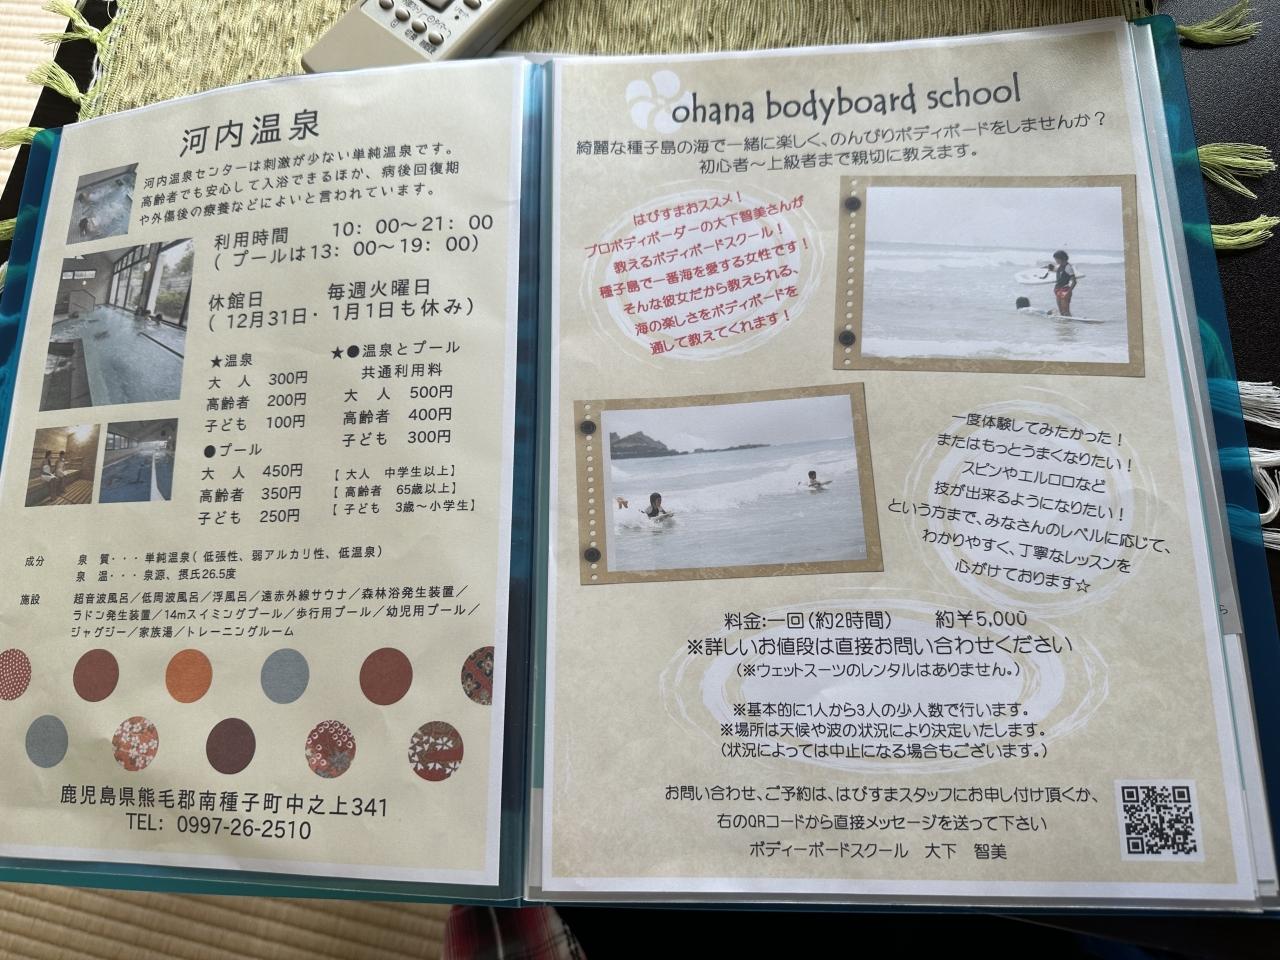 河内温泉
河内温泉センターは刺激が少ない単純温泉です。
高齢者でも安心して入浴できるほか、病後回復期
や外傷後の療養などによいと言われています。
利用時間　10：00〜21：00
（ プールは13：00〜19：00）
休館日　毎週火曜日
（ 12月31日・1月1日も休み）
★温泉
大　人　300円
高齢者　200円
子ども　100円
●プール
大　人　450円
高齢者　350円
子ども　250円
★●温泉とプール
共通利用料
大　人　500円
高齢者　400円
子ども　300円
【 大人　中学生以上】
【 高齢者　65歳以上】
【 子ども　3歳〜小学生】
成分　泉　質・・・単純温泉（ 低張性、弱アルカリ性、低温泉）
泉　温・・・泉源、摂氏26.5度
施設　超音波風呂／低周波風呂／浮風呂／遠赤外線サウナ／森林浴発生装置／
ラドン発生装置／14mスイミングプール／歩行用プール／幼児用プール／
ジャグジー／家族湯／トレーニングルーム
鹿児島県熊毛郡南種子町中之上341
TEL： 0997-26-2510
ohana bodyboard school
綺麗な種子島の海で一緒に楽しく、のんびりボディボードをしませんか？
初心者〜上級者まで親切に教えます。
はぴすまおススメ！
プロボディボーダーの大下智美さんが
教えるボディボードスクール！
種子島で一番海を愛する女性です！
そんな彼女だから教えられる、
海の楽しさをボディボードを
通して教えてくれます！
一度体験してみたかった！
またはもっとうまくなりたい！
スピンやエルロロなど
技が出来るようになりたい！
という方まで、みなさんのレベルに応じて、
わかりやすく、丁寧なレッスンを
心がけております☆
料金:一回（約2時間）　約￥5,000
※詳しいお値段は直接お問い合わせください
（※ウェットスーツのレンタルはありません。）
※基本的に1人から3人の少人数で行います。
※場所は天候や波の状況により決定いたします。
（状況によっては中止になる場合もございます。）
お問い合わせ、ご予約は、はぴすまスタッフにお申し付け頂くか、
右のQRコードから直接メッセージを送って下さい
ボディーボードスクール　大下　智美